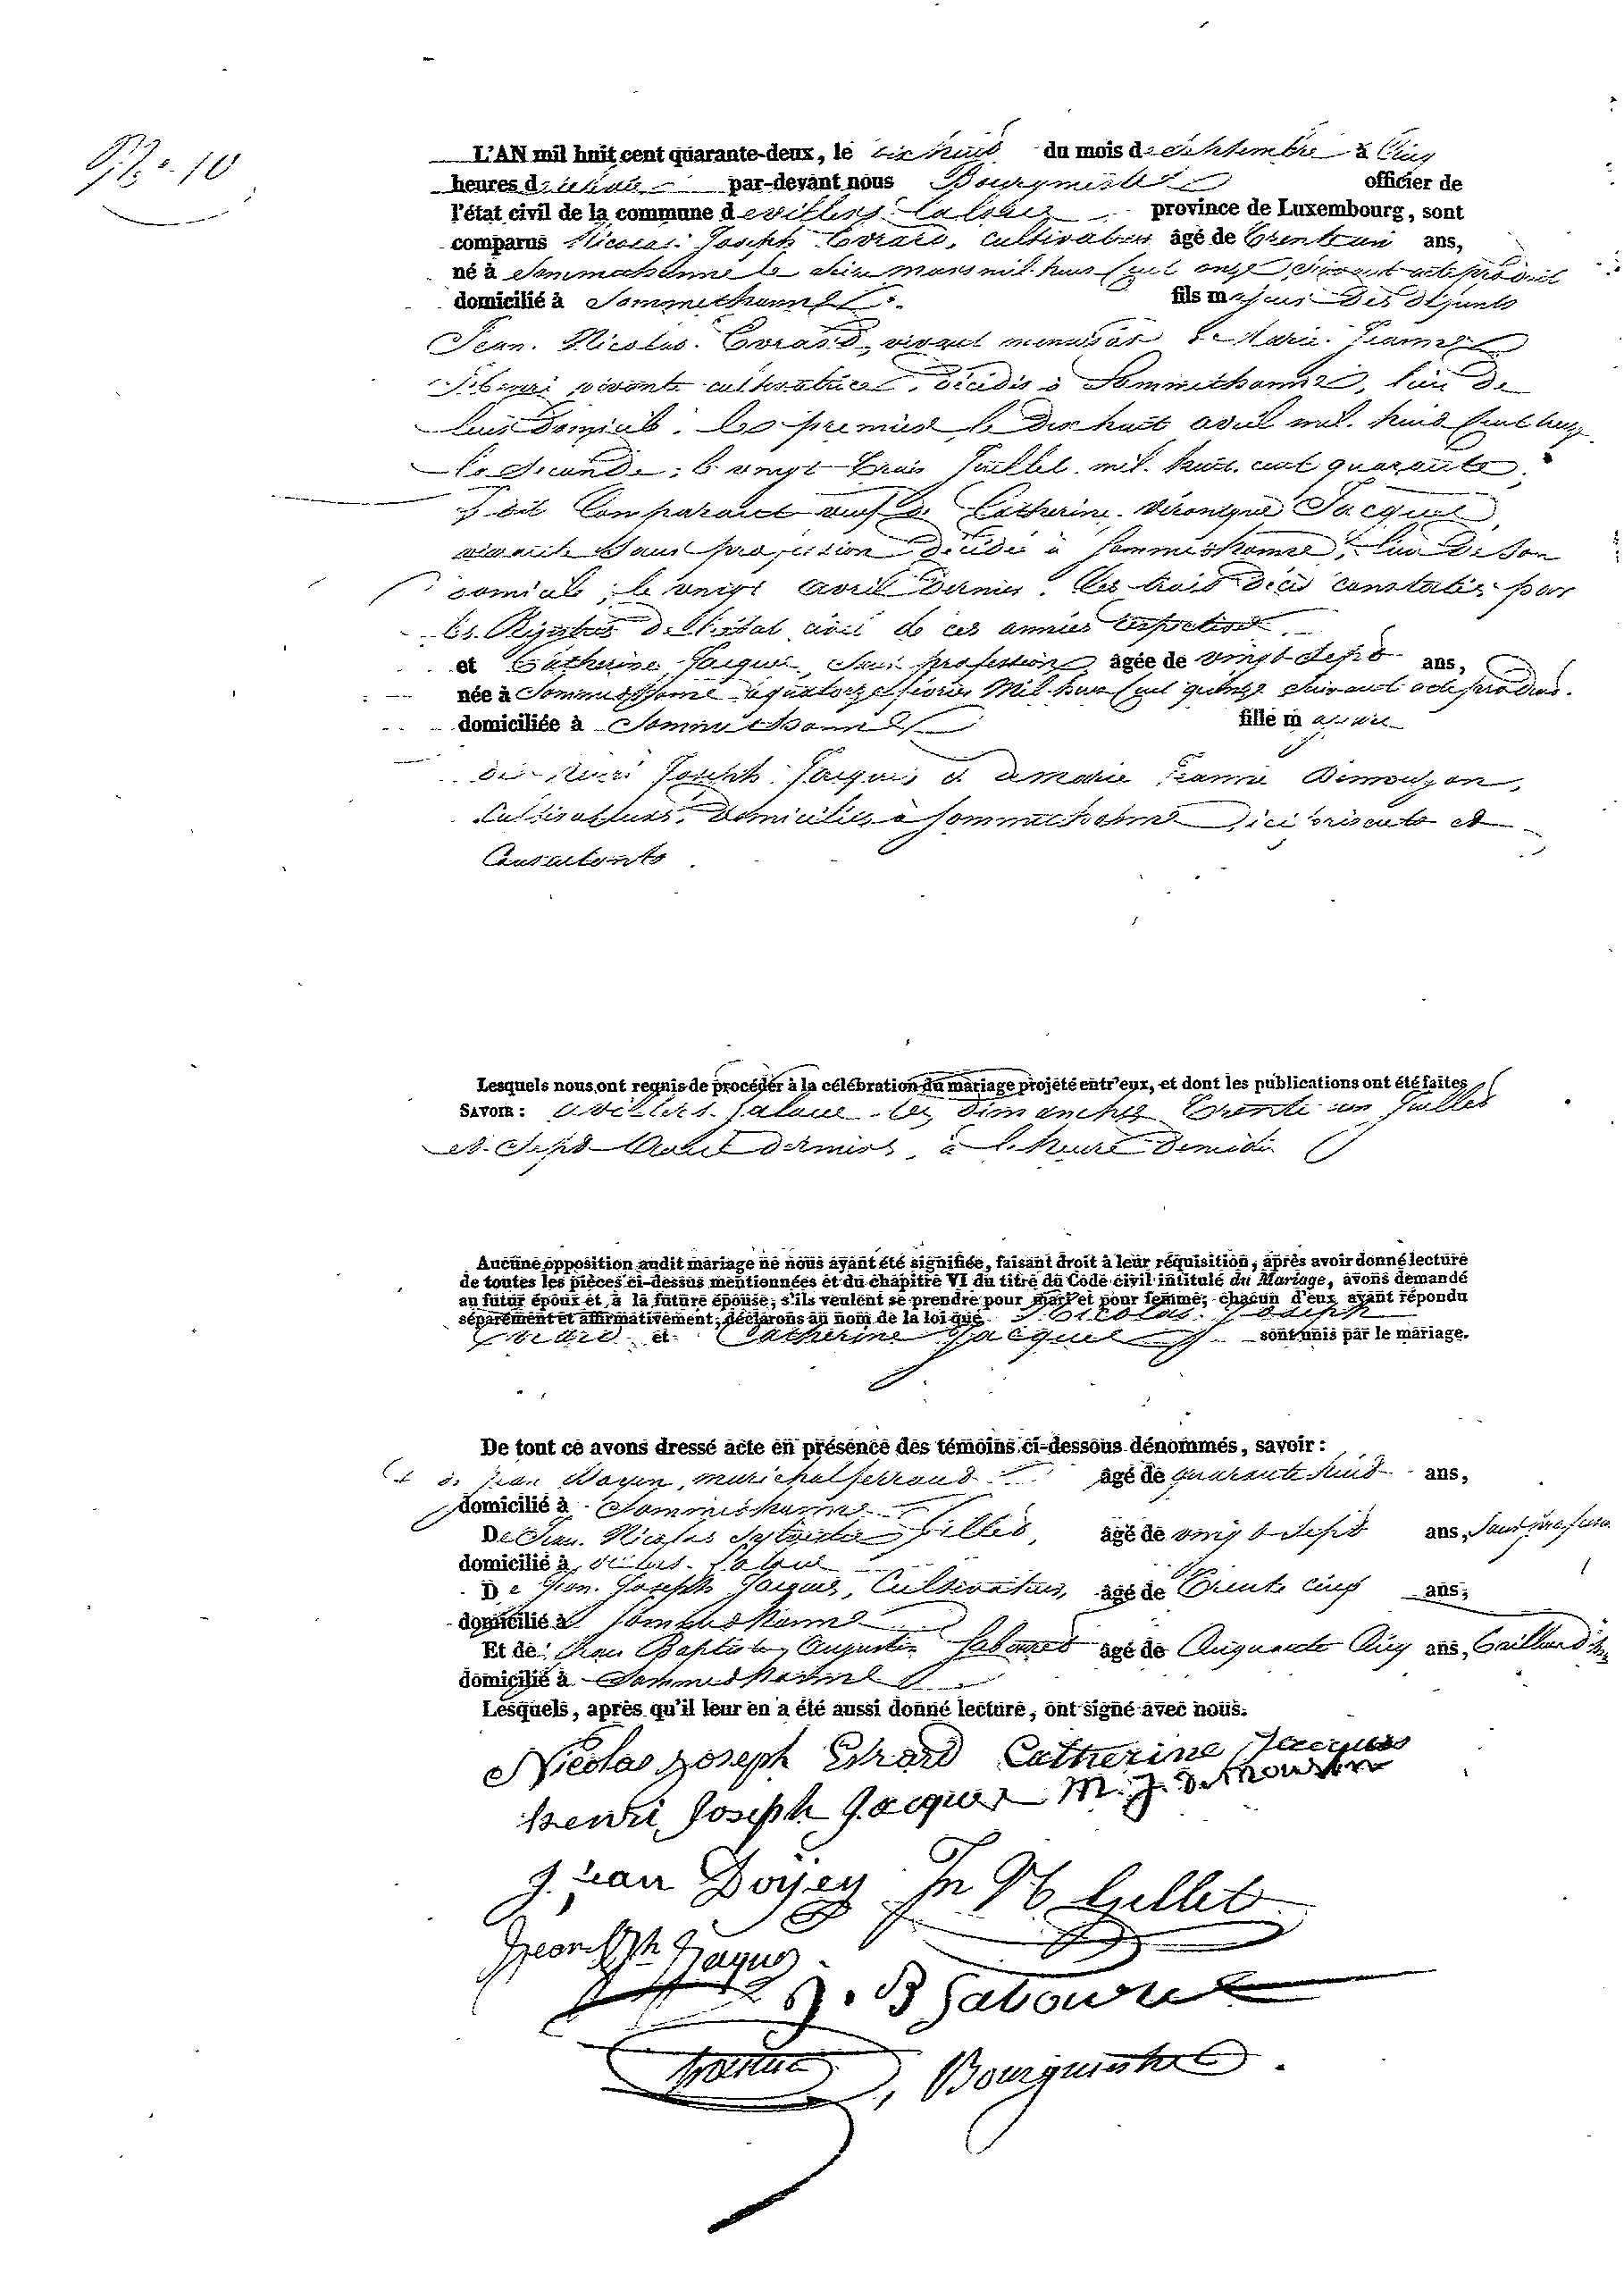 N° 10
L'AN mil huit cent quarante-deux, le dix huit du mois de Septembre à Cinq
heures de par-devant nous Bourgmestre officier de
l'état civil de la commune de villers la loue province de Luxembourg, sont
comparus Nicolas Joseph Evrard, cultivateur âgé de trente un ans,
né à Sommethonne le seize mars mil huit cent onze, suivant acte produit
domicilié à Sommethonne fils majeur des défunts
Jean Nicolas Evrard, vivant menuisier & Marie Jeanne
vivante cultivatrice, décédés à Sommethonne, lieu de
leur domicile, les premier le dix huit avril mil huit cent
la seconde, le vingt trois Juillet mil huit cent quarante,
dit Comparant veuf de Catherine Véronique Jacques
vivante sans profession décédée à Sommethonne, lieu de son
domicile, le vingt avril dernier. Les trois décès constatés par
les Registres de l'état civil de ces années respectives
et Catherine Jacques, sans profession âgée de vingt sept ans,
née à Sommethonne le quatorze février mil huit cent quinze suivant acte produit.
domiciliée à Sommethonne fille majeure
de Henri Joseph Jacques et de Marie Jeanne Demouzon,
Cultivateurs, domiciliés à Sommethonne, ici présents et
Consentants
Lesquels nous ont requis de procéder à la célébration du mariage projeté entr'eux, et dont les publications ont été faites
SAVOIR : à villers la loue les dimanches trente un Juillet
et sept Août derniers, à l'heure de midi
Aucune opposition audit mariage ne nous ayant été signifiée, faisant droit à leur réquisition, après avoir donné lecture
de toutes les pièces ci-dessus mentionnées et du chapitre VI du titre du Code civil intitulé du Mariage, avons demandé
au futur époux et à la future épouse, s'ils veulent se prendre pour mari et pour femme; chacun d'eux ayant répondu
séparément et affirmativement, déclarons au nom de la loi que Nicolas Joseph
Evrard et Catherine Jacques sont unis par le mariage.
De tout ce avons dressé acte en présence des témoins ci-dessous dénommés, savoir :
de Jean Doyen, maréchal ferrand âgé de quarante huit ans,
domicilié à Sommethonne
De Jean Nicolas Sylvestre Gillet, âgé de vingt sept ans, Sans profession
domicilié à villers la loue
De Jean Joseph Jacques, Cultivateur, âgé de Trente cinq ans,
domicilié à Sommethonne
Et de Jean Baptiste Augustin Labouret âgé de Cinquante Cinq ans,
domicilié à Sommethonne
Lesquels, après qu'il leur en a été aussi donné lecture, ont signé avec nous.
Nicolas Joseph Evrard Catherine Jacques
henri Joseph Jacques M. J. Demouzon
Jean Doyen Jn N Gillet
Jean Jph Jaques
J. B Labouret
Bourgmestre.